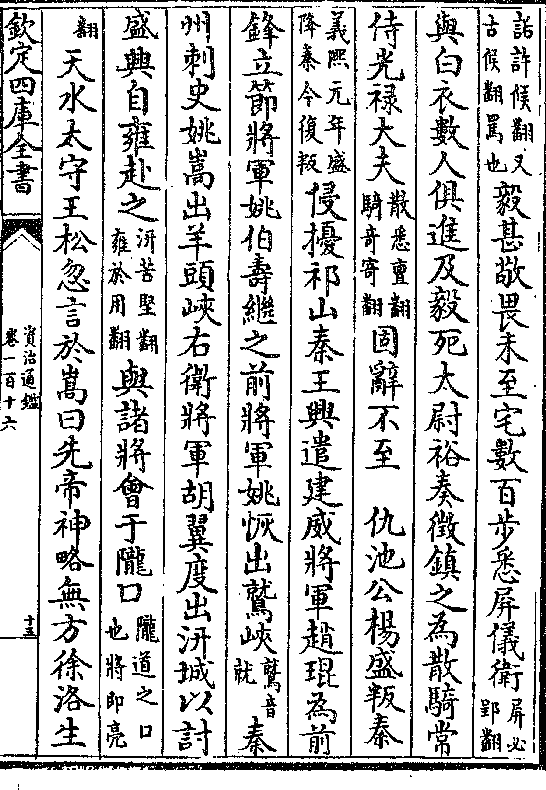 詬許候翻又古候翻罵也毅甚敬畏未至宅數百步悉屏儀衛屏必郢翻
與白衣數人俱進及毅死太尉裕奏徵鎮之為散騎常
侍光禄大夫散悉亶翻騎奇寄翻固辭不至　仇池公楊盛叛秦
義熙元年盛降秦今復叛侵擾祁山秦王興遣建威將軍趙琨為前
鋒立節將軍姚伯壽繼之前將軍姚恢出鷲峽鷲音就秦
州刺史姚嵩出羊頭峽右衛將軍胡翼度出汧城以討
盛興自雍赴之汧苦堅翻雍於用翻與諸將會于隴口隴道之口也將即亮
翻天水太守王松忽言於嵩曰先帝神略無方徐洛生
欽定四庫全書
資治通鑑
卷一百十六
十五